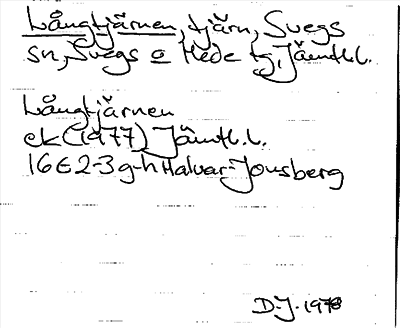 Långtjärnen, tjärn, Svegs
sn, Svegs o Hede tg, Jämtl.l.
Långtjärnen
ek (1977) Jämtl.l.
16E2-3g-h Halvar-Jonsberg
D.J. 1978